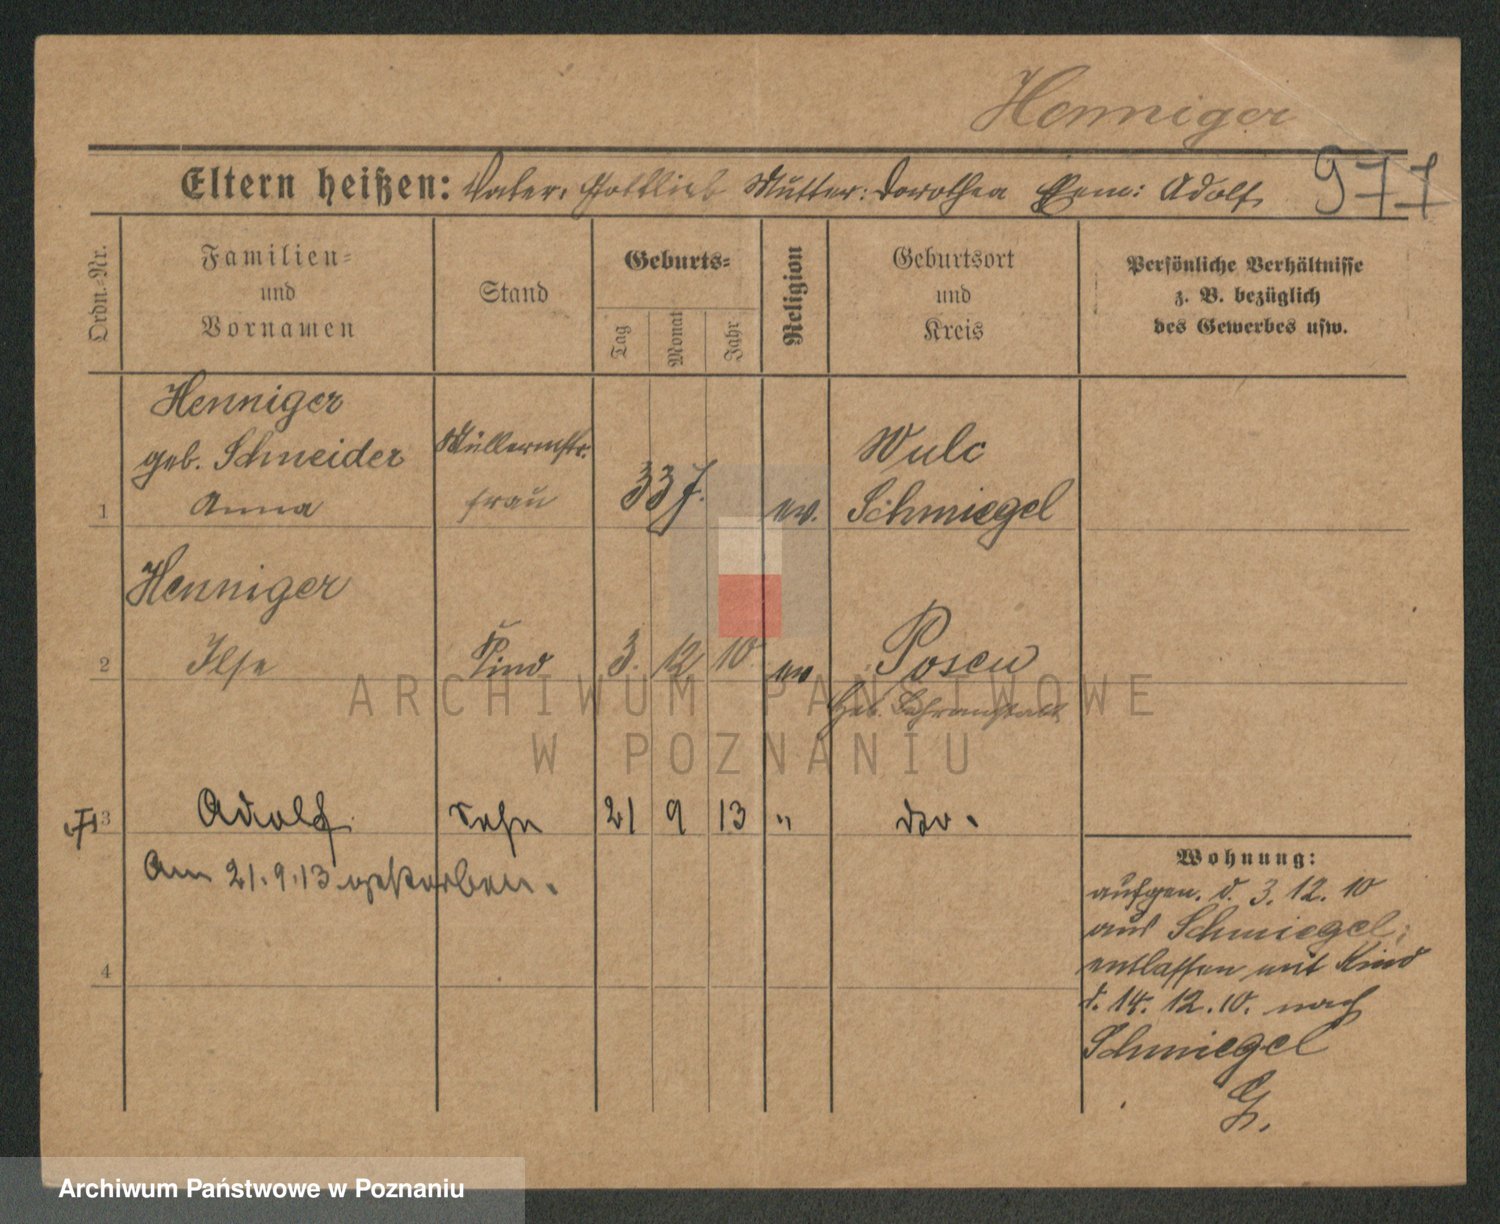 Henniger
977
Eltern heißen: Vater: Gottlieb Mutter: Dorothea Adolf
Ordn.-Nr.
Familien-
und
Vornamen
Stand
Geburts-
Tag
Monat
Jahr
Religion
Geburtsort
und
Kreis
Persönliche Verhältnisse
z. B. bezüglich
des Gewerbes usw.
Henniger
geb. Schneider
Anna
Müllermstr.
frau
33 J.
ev.
Wulc
Schmiegel
1
Henniger
Ilse
Kind
3. 12 10.
ev
Posen
Heb. Lehranstalt
2
3
Adolf
Sohn
21 9 13 "
do.
Am 21.9.13 gestorben.
4
Wohnung:
aufgen. d. 3. 12. 10
aus Schmiegel,
entlassen mit Kind
d. 14. 12. 10. nach
Schmiegel
G.
ARCHIWUM PAŃSTWOWE
W POZNANIU
Archiwum Państwowe w Poznaniu